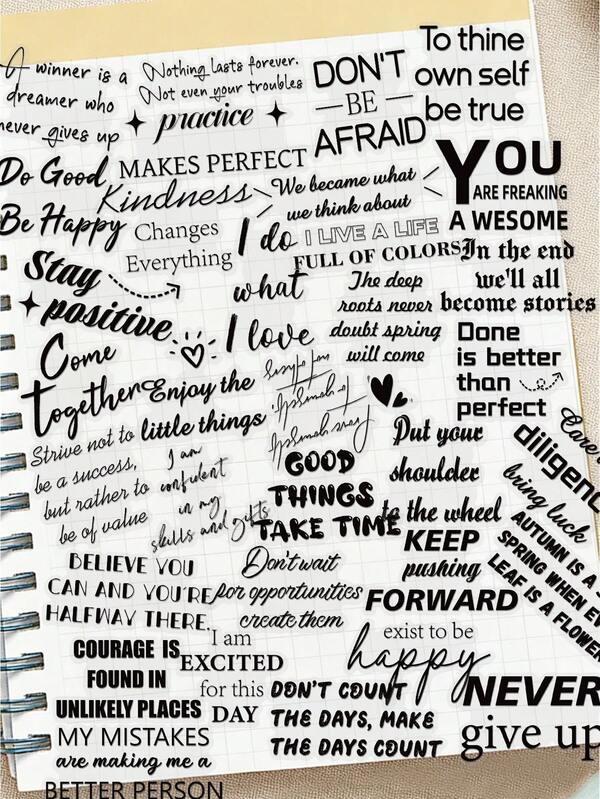 A winner is a
dreamer who
never gives up
Nothing lasts forever.
Not even your troubles
practice
MAKES PERFECT
DON'T
BE
AFRAID
To thine
own self
be true
Do Good
Be Happy
Kindness
Changes
Everything
We became what
we think about
YOU
ARE FREAKING
AWESOME
I do
what
I love
I LIVE A LIFE
FULL OF COLORS
In the end
we'll all
become stories
Stay
positive
The deep
roots never
doubt spring
will come
Done
is better
than
perfect
Come
together
Enjoy the
little things
Strive not to
be a success,
but rather to
be of value
I am
confident
in my
skills and gifts
GOOD
THINGS
TAKE TIME
Put your
shoulder
to the wheel
diligenc
bring luck
AUTUMN IS A
SPRING WHEN EV
LEAF IS A FLOWER
BELIEVE YOU
CAN AND YOU'RE
HALFWAY THERE.
Don't wait
for opportunities
create them
KEEP
pushing
FORWARD
COURAGE IS
FOUND IN
UNLIKELY PLACES
I am
EXCITED
for this
DAY
exist to be
happy
DON'T COUNT
THE DAYS, MAKE
THE DAYS COUNT
NEVER
give up
MY MISTAKES
are making me a
BETTER PERSON